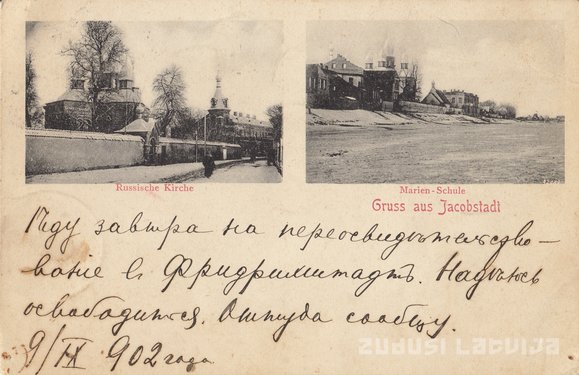 Russische Kirche
Marien-Schule
Gruss aus Jacobstadt
Ѣду завтра на переосвидѣтельство-
ваніе въ Фридрихштадтъ. Надѣюсь
освободиться. Оттуда сообщу.
9/IX 902 года
ZUDUSI LATVIJA